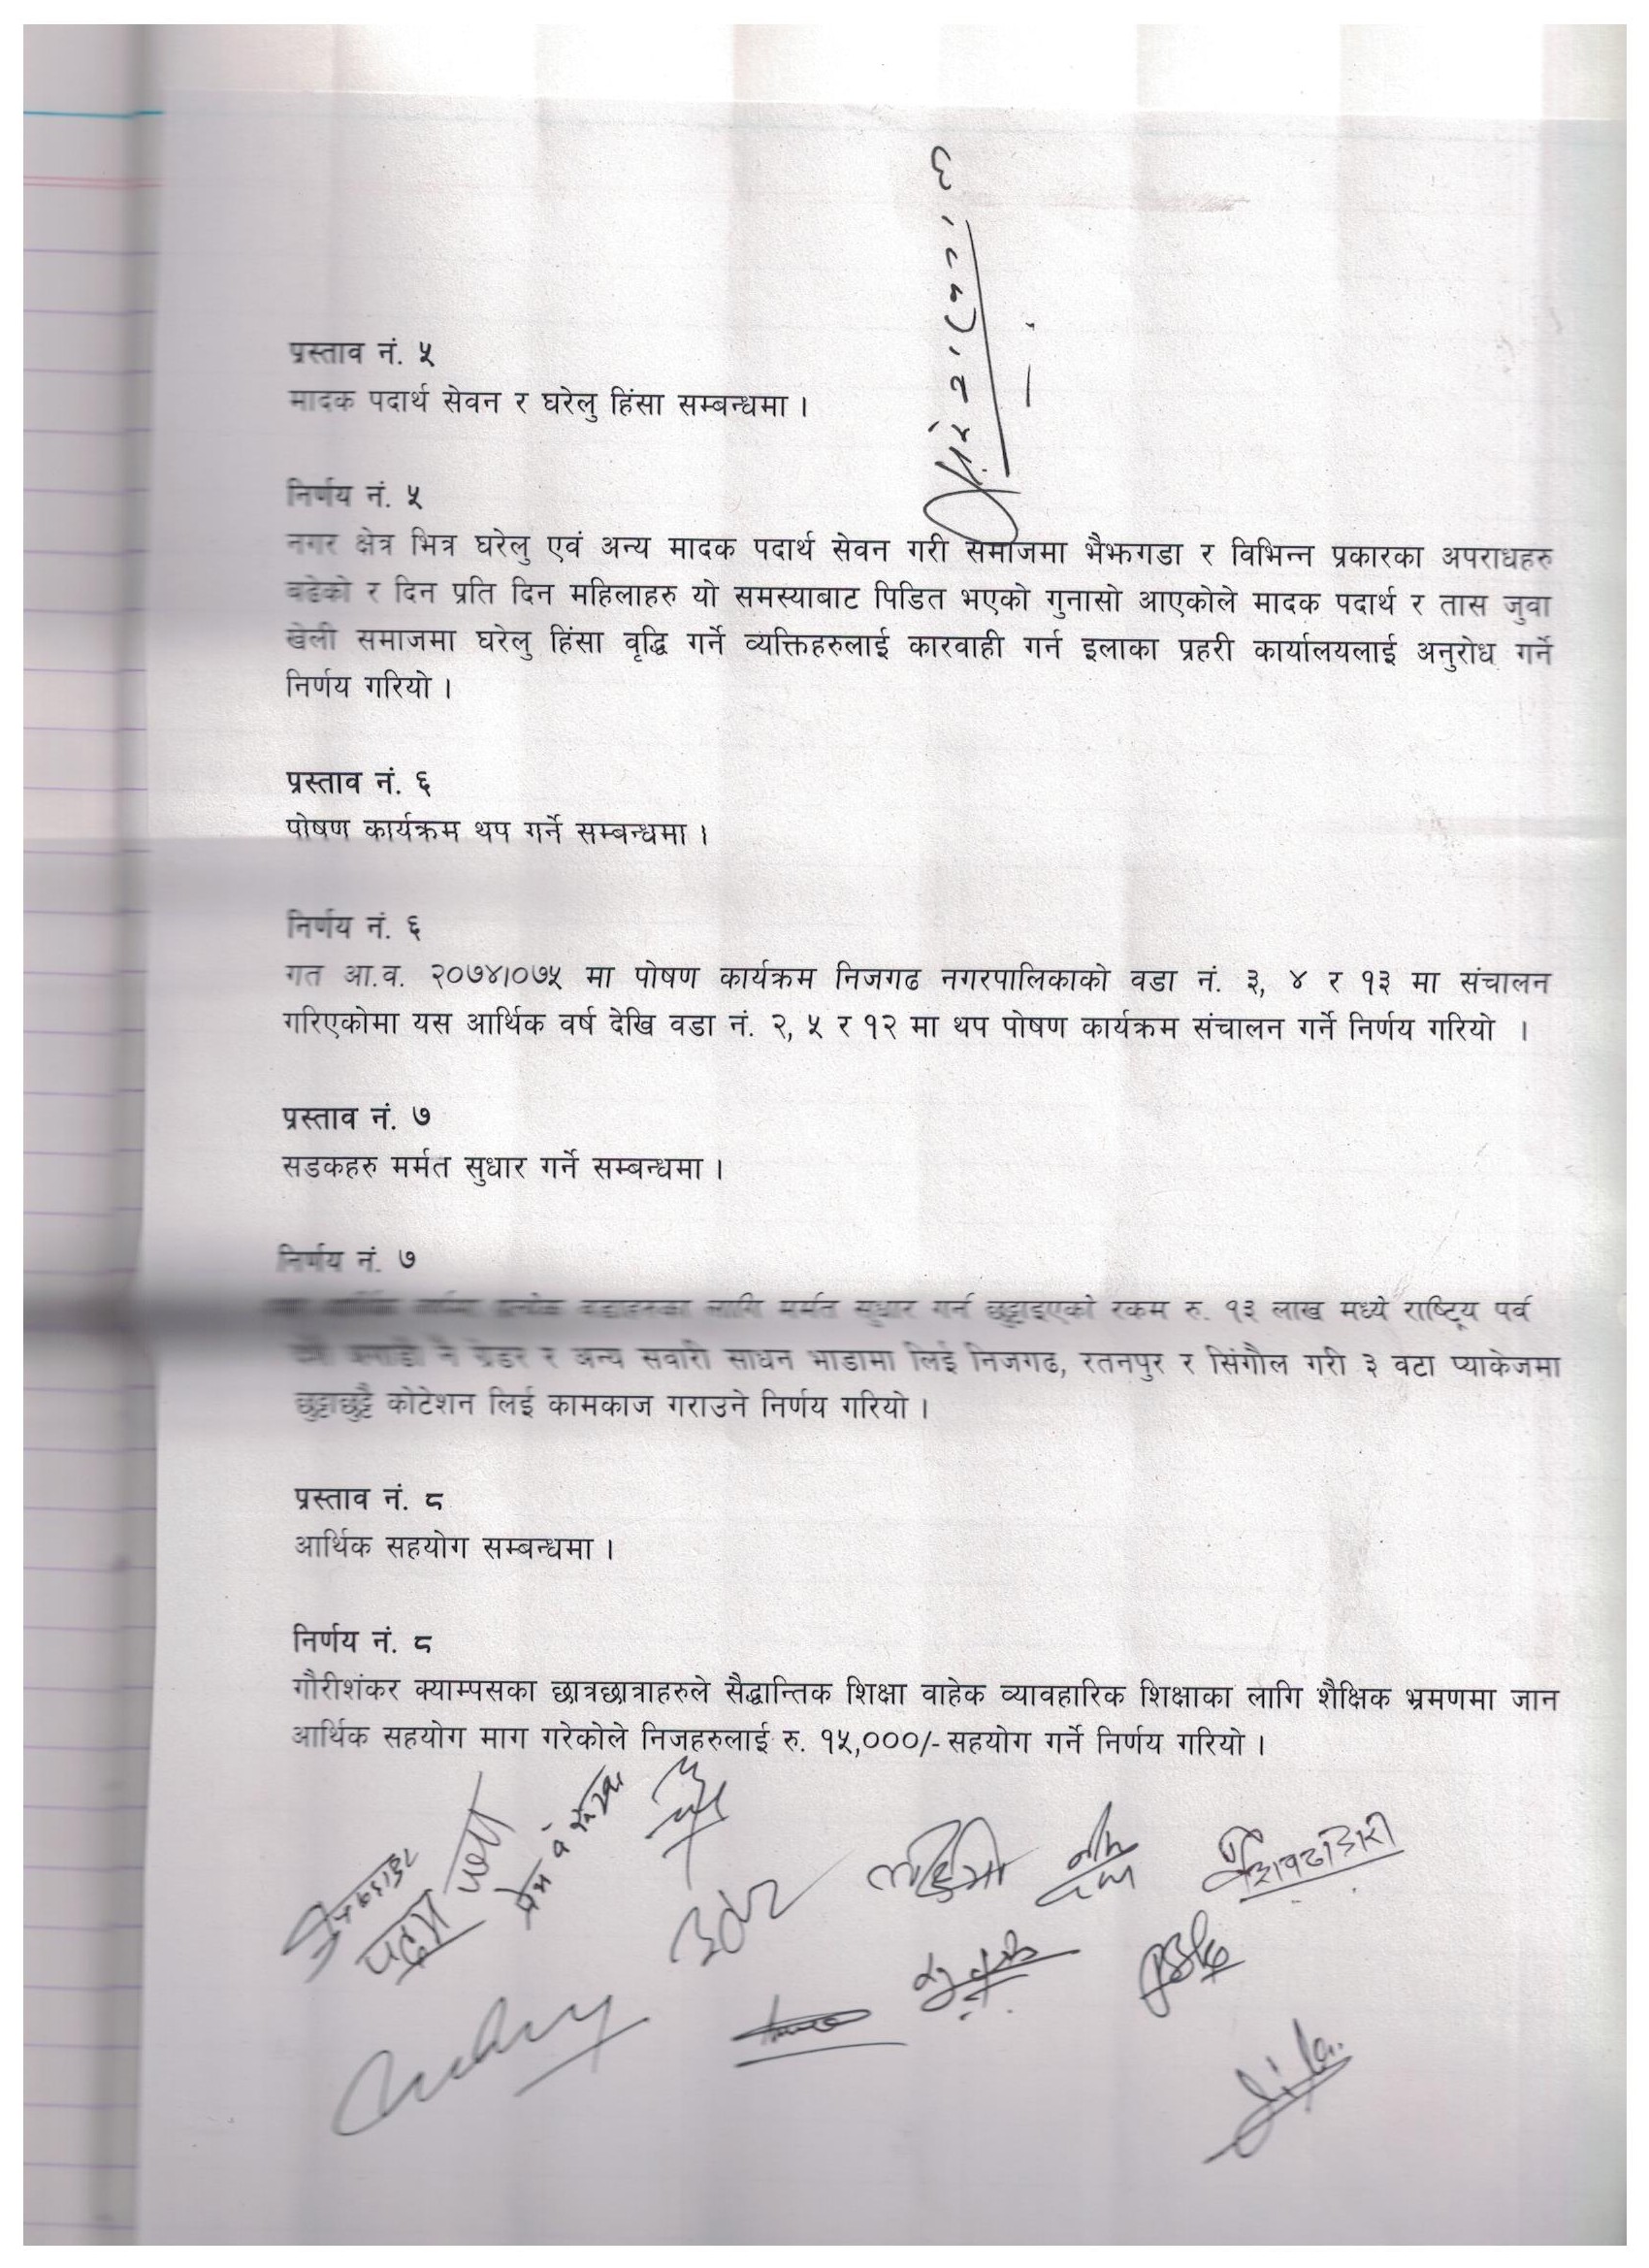 प्रस्ताव नं. ५
मादक पदार्थ सेवन र घरेलु हिंसा सम्बन्धमा ।
निर्णय नं. ५
नगर क्षेत्र भित्र घरेलु एवं अन्य मादक पदार्थ सेवन गरी समाजमा भैझगडा र विभिन्न प्रकारका अपराधहरु
बढेको र दिन प्रति दिन महिलाहरु यो समस्याबाट पिडित भएको गुनासो आएकोले मादक पदार्थ र तास जुवा
खेली समाजमा घरेलु हिंसा वृद्धि गर्ने व्यक्तिहरुलाई कारवाही गर्न इलाका प्रहरी कार्यालयलाई अनुरोध गर्ने
निर्णय गरियो ।
प्रस्ताव नं. ६
पोषण कार्यक्रम थप गर्ने सम्बन्धमा ।
निर्णय नं. ६
गत आ.व. २०७४।०७५ मा पोषण कार्यक्रम निजगढ नगरपालिकाको वडा नं. ३, ४ र १३ मा संचालन
गरिएकोमा यस आर्थिक वर्ष देखि वडा नं. २, ५ र १२ मा थप पोषण कार्यक्रम संचालन गर्ने निर्णय गरियो ।
प्रस्ताव नं. ७
सडकहरु मर्मत सुधार गर्ने सम्बन्धमा ।
निर्णय नं. ७
वडाहरुका लागि मर्मत सुधार गर्न छुट्टाइएको रकम रु. १३ लाख मध्ये राष्ट्रिय पर्व
अगाडी नै ग्रेडर र अन्य सवारी साधन भाडामा लिई निजगढ, रतनपुर र सिंगौल गरी ३ वटा प्याकेजमा
छुट्टाछुट्टै कोटेशन लिई कामकाज गराउने निर्णय गरियो ।
प्रस्ताव नं. ८
आर्थिक सहयोग सम्बन्धमा ।
निर्णय नं. ८
गौरीशंकर क्याम्पसका छात्रछात्राहरुले सैद्धान्तिक शिक्षा वाहेक व्यावहारिक शिक्षाका लागि शैक्षिक भ्रमणमा जान
आर्थिक सहयोग माग गरेकोले निजहरुलाई रु. १५,०००/- सहयोग गर्ने निर्णय गरियो ।